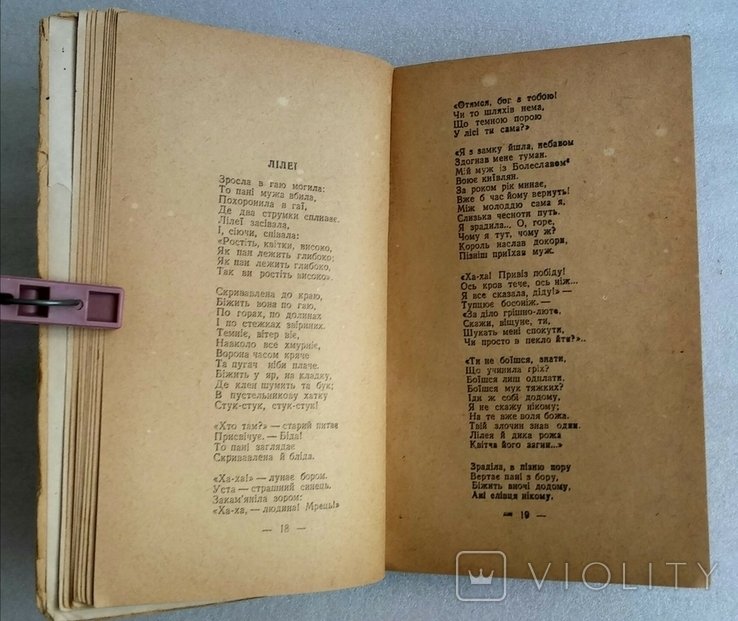 ЛІЛЕЇ
Зросла в гаю могила:
То пані мужа вбила,
Похоронила в гаї,
Де два струмки спливає.
Лілеї засівала,
І, сіючи, співала:
«Ростіть, квітки, високо,
Як пан лежить глибоко;
Як пан лежить глибоко,
Так ви ростіть високо».
Скривавлена до краю,
Біжить вона по гаю,
По горах, по долинах
І по стежках звіриних.
Темніє, вітер віє,
Навколо все хмурніє,
Ворона часом кряче
Та пугач ніби плаче.
Біжить у яр, на кладку,
Де клен шумить та бук;
В пустельникову хатку
Стук-стук, стук-стук!
«Хто там?» — старий питає
Присвічує. — Біда!
То пані заглядає
Скривавлена й бліда.
«Ха-ха!» — лунає бором.
Уста — страшний синець,
Закам'яніла зором:
«Ха-ха, — людина! Мрець!
— 18 —
«Отямся, бог з тобою!
Чи то шляхів нема,
Що темною порою
У лісі ти сама?»
«Я з замку йшла, небавом
Здогнав мене туман.
Мій муж із Болеславом
Воює київлян.
За роком рік минає,
Вже б час йому вернуть!
Між молоддю сама я,
Слизька чесноти путь.
Я зрадила... О, горе,
Чому я тут, чому ж?
Король наслав докори,
Пізніш приїхав муж.
«Ха-ха! Привіз побіду!
Ось кров тече, ось ніж...
Я все сказала, діду!» —
Тупцює босоніж. —
«За діло грішно-люте,
Скажи, віщуне, ти,
Шукать мені спокути,
Чи просто в пекло йти?»..
«Ти не боїшся, знати,
Що учинила гріх?
Боїшся лиш одплати,
Боїшся мук тяжких?
Іди ж собі додому,
Я не скажу нікому;
На те вже воля божа.
Твій злочин знав один.
Лілея й дика рожа
Квітча його загин...»
Зраділа, в пізню пору
Вертає пані з бору,
Біжить вночі додому,
Ані слівця нікому,
— 19 —
VIOLITY